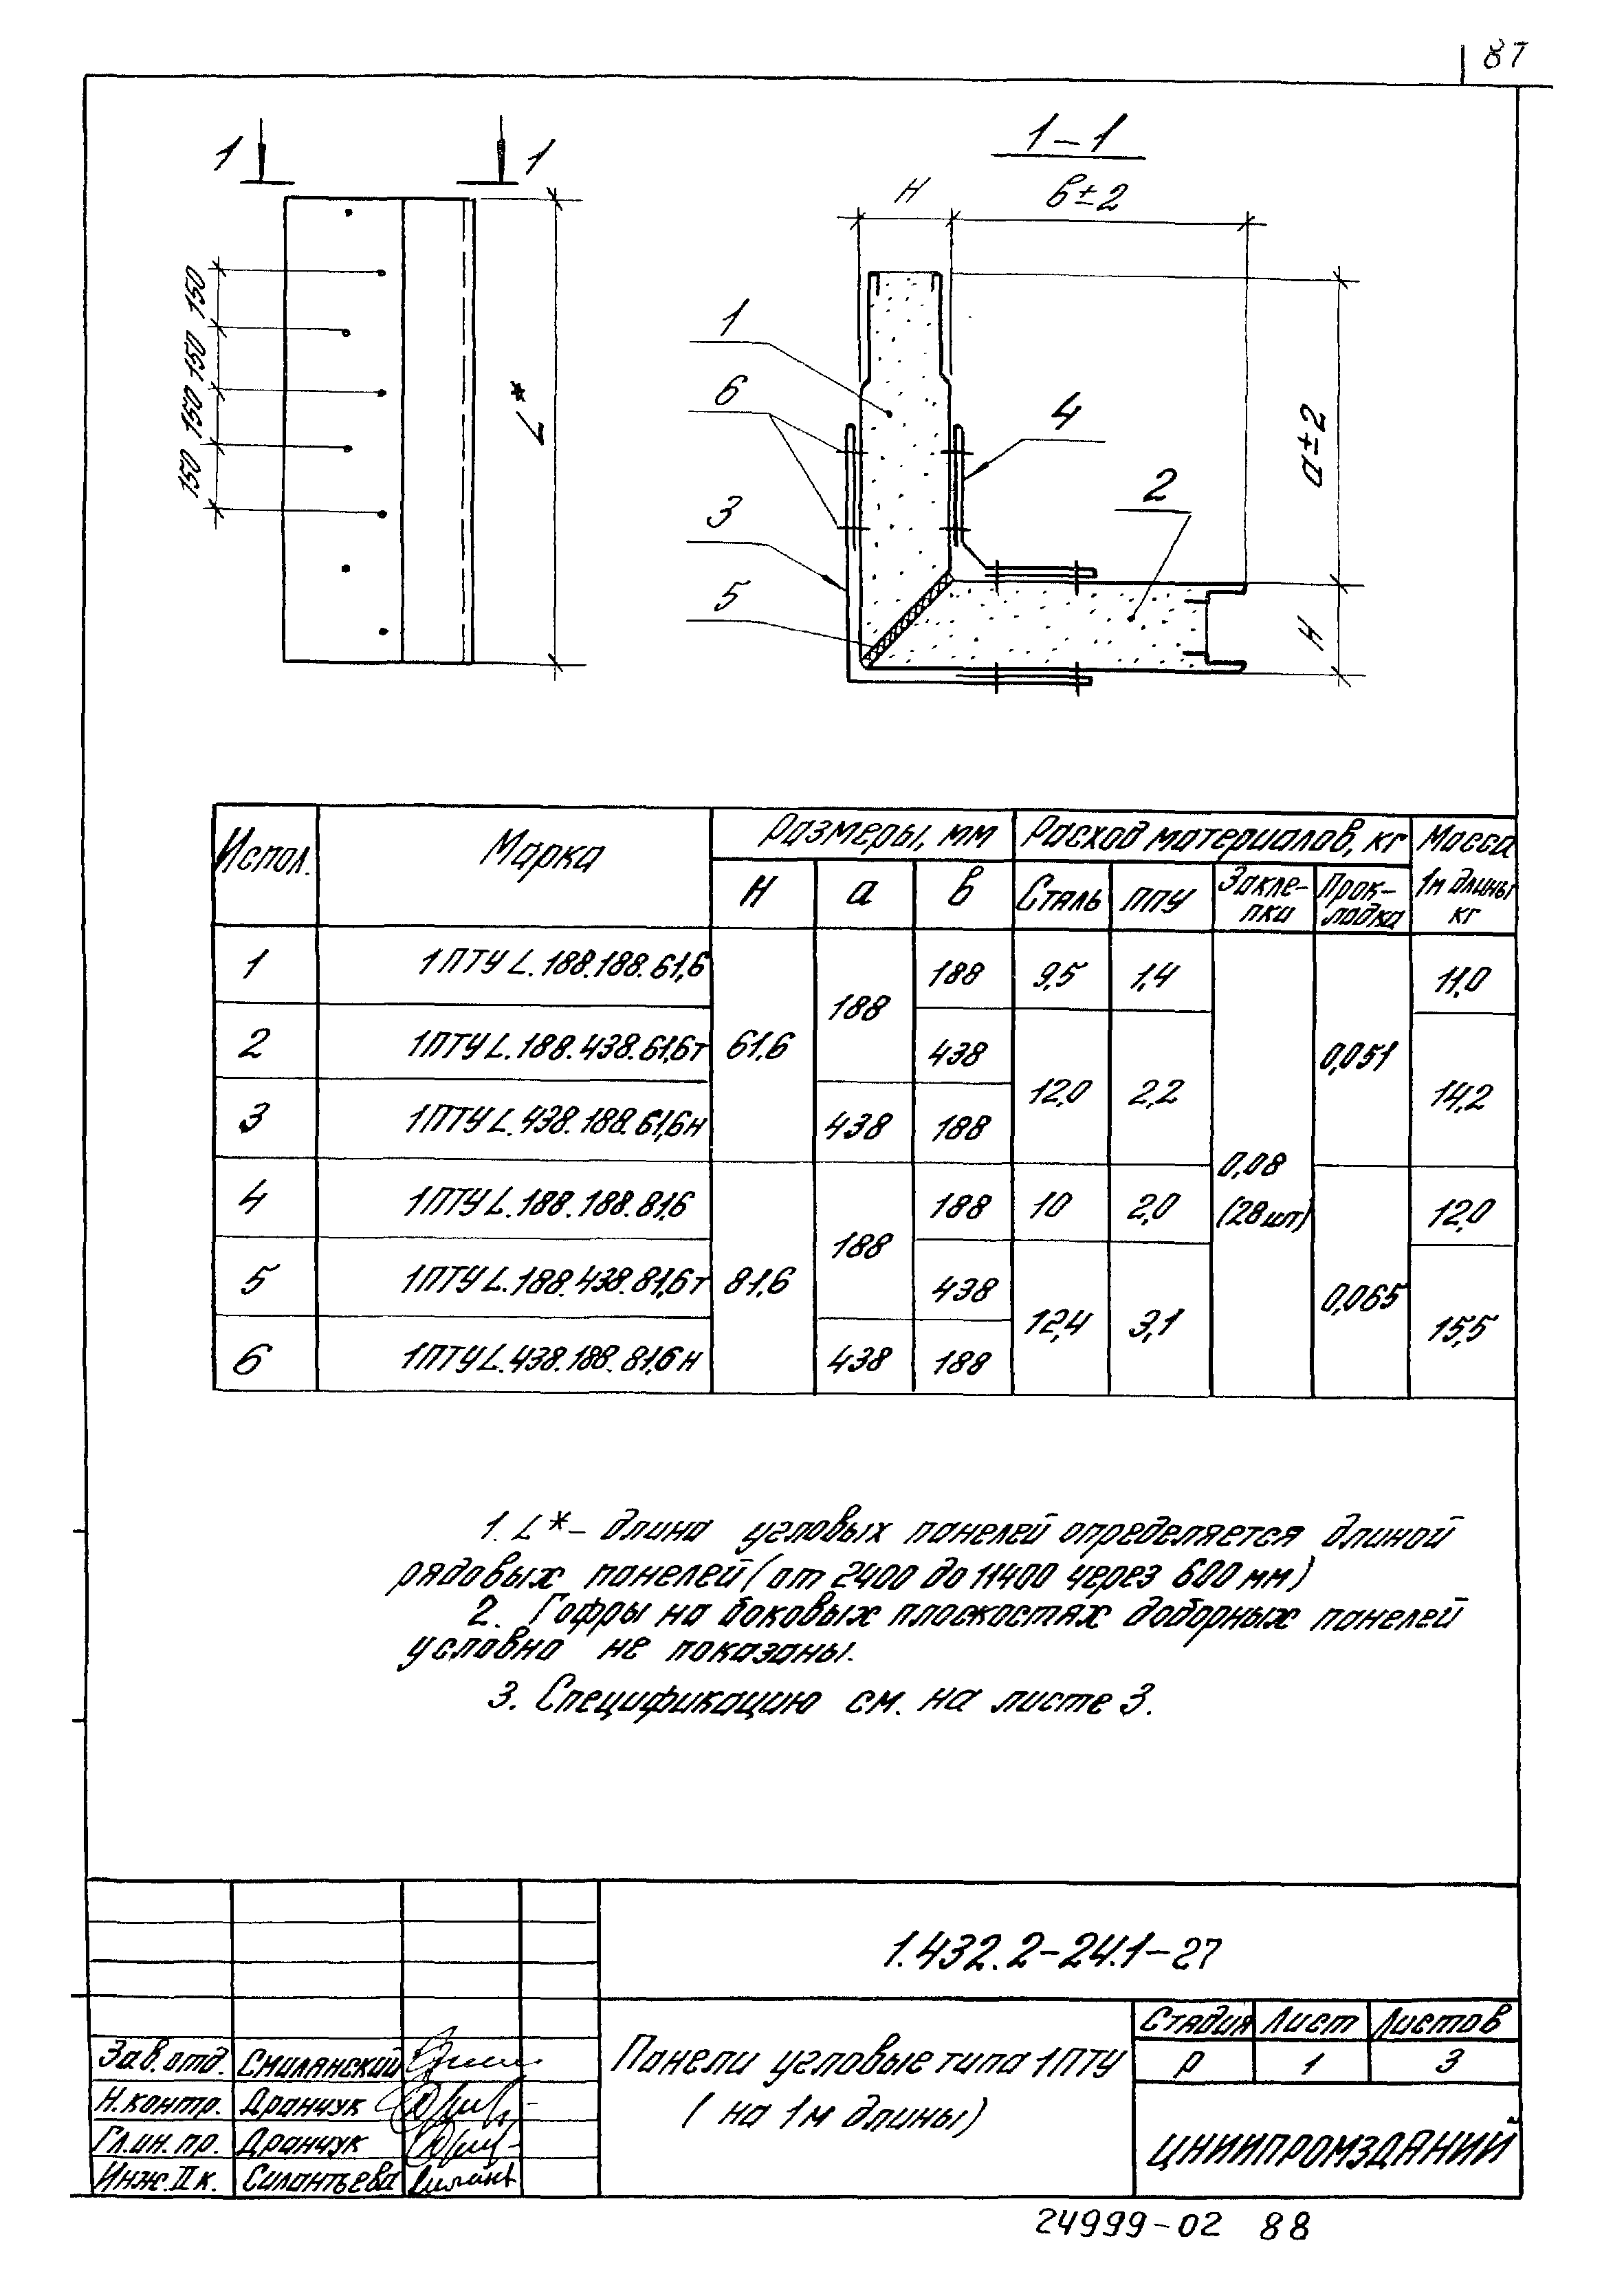 87
1 1
1-1
Н в±2
150 150 150 150
L*
1
6
3
5
4
2
а±2
Н
Испол. Марка Размеры, мм Расход материалов, кг Масса 1м длины кг
Н а в Сталь ППУ Заклепки Прокладка
1 1ПТУ L.188.188.61,6 61,6 188 188 9,5 1,4 0,08 (28 шт) 0,051 11,0
2 1ПТУ L.188.438.61,6т 438 12,0 2,2 14,2
3 1ПТУ L.438.188.61,6н 438 188
4 1ПТУ L.188.188.81,6 81,6 188 188 10 2,0 0,065 12,0
5 1ПТУ L.188.438.81,6т 438 12,4 3,1 15,5
6 1ПТУ L.438.188.81,6н 438 188
1. L*– длина угловых панелей определяется длиной
рядовых панелей (от 2400 до 11400 через 600 мм)
2. Гофры на боковых плоскостях доборных панелей
условно не показаны.
3. Спецификацию см. на листе 3.
1.432.2-24.1-27
Стадия Лист Листов
Р 1 3
Панели угловые типа 1ПТУ
(на 1м длины)
ЦНИИПРОМЗДАНИЙ
Зав.отд. Смилянский
Н.контр. Дранчук
Гл.ин.пр. Дранчук
Инж.IIк. Силантьева
24999-02 88